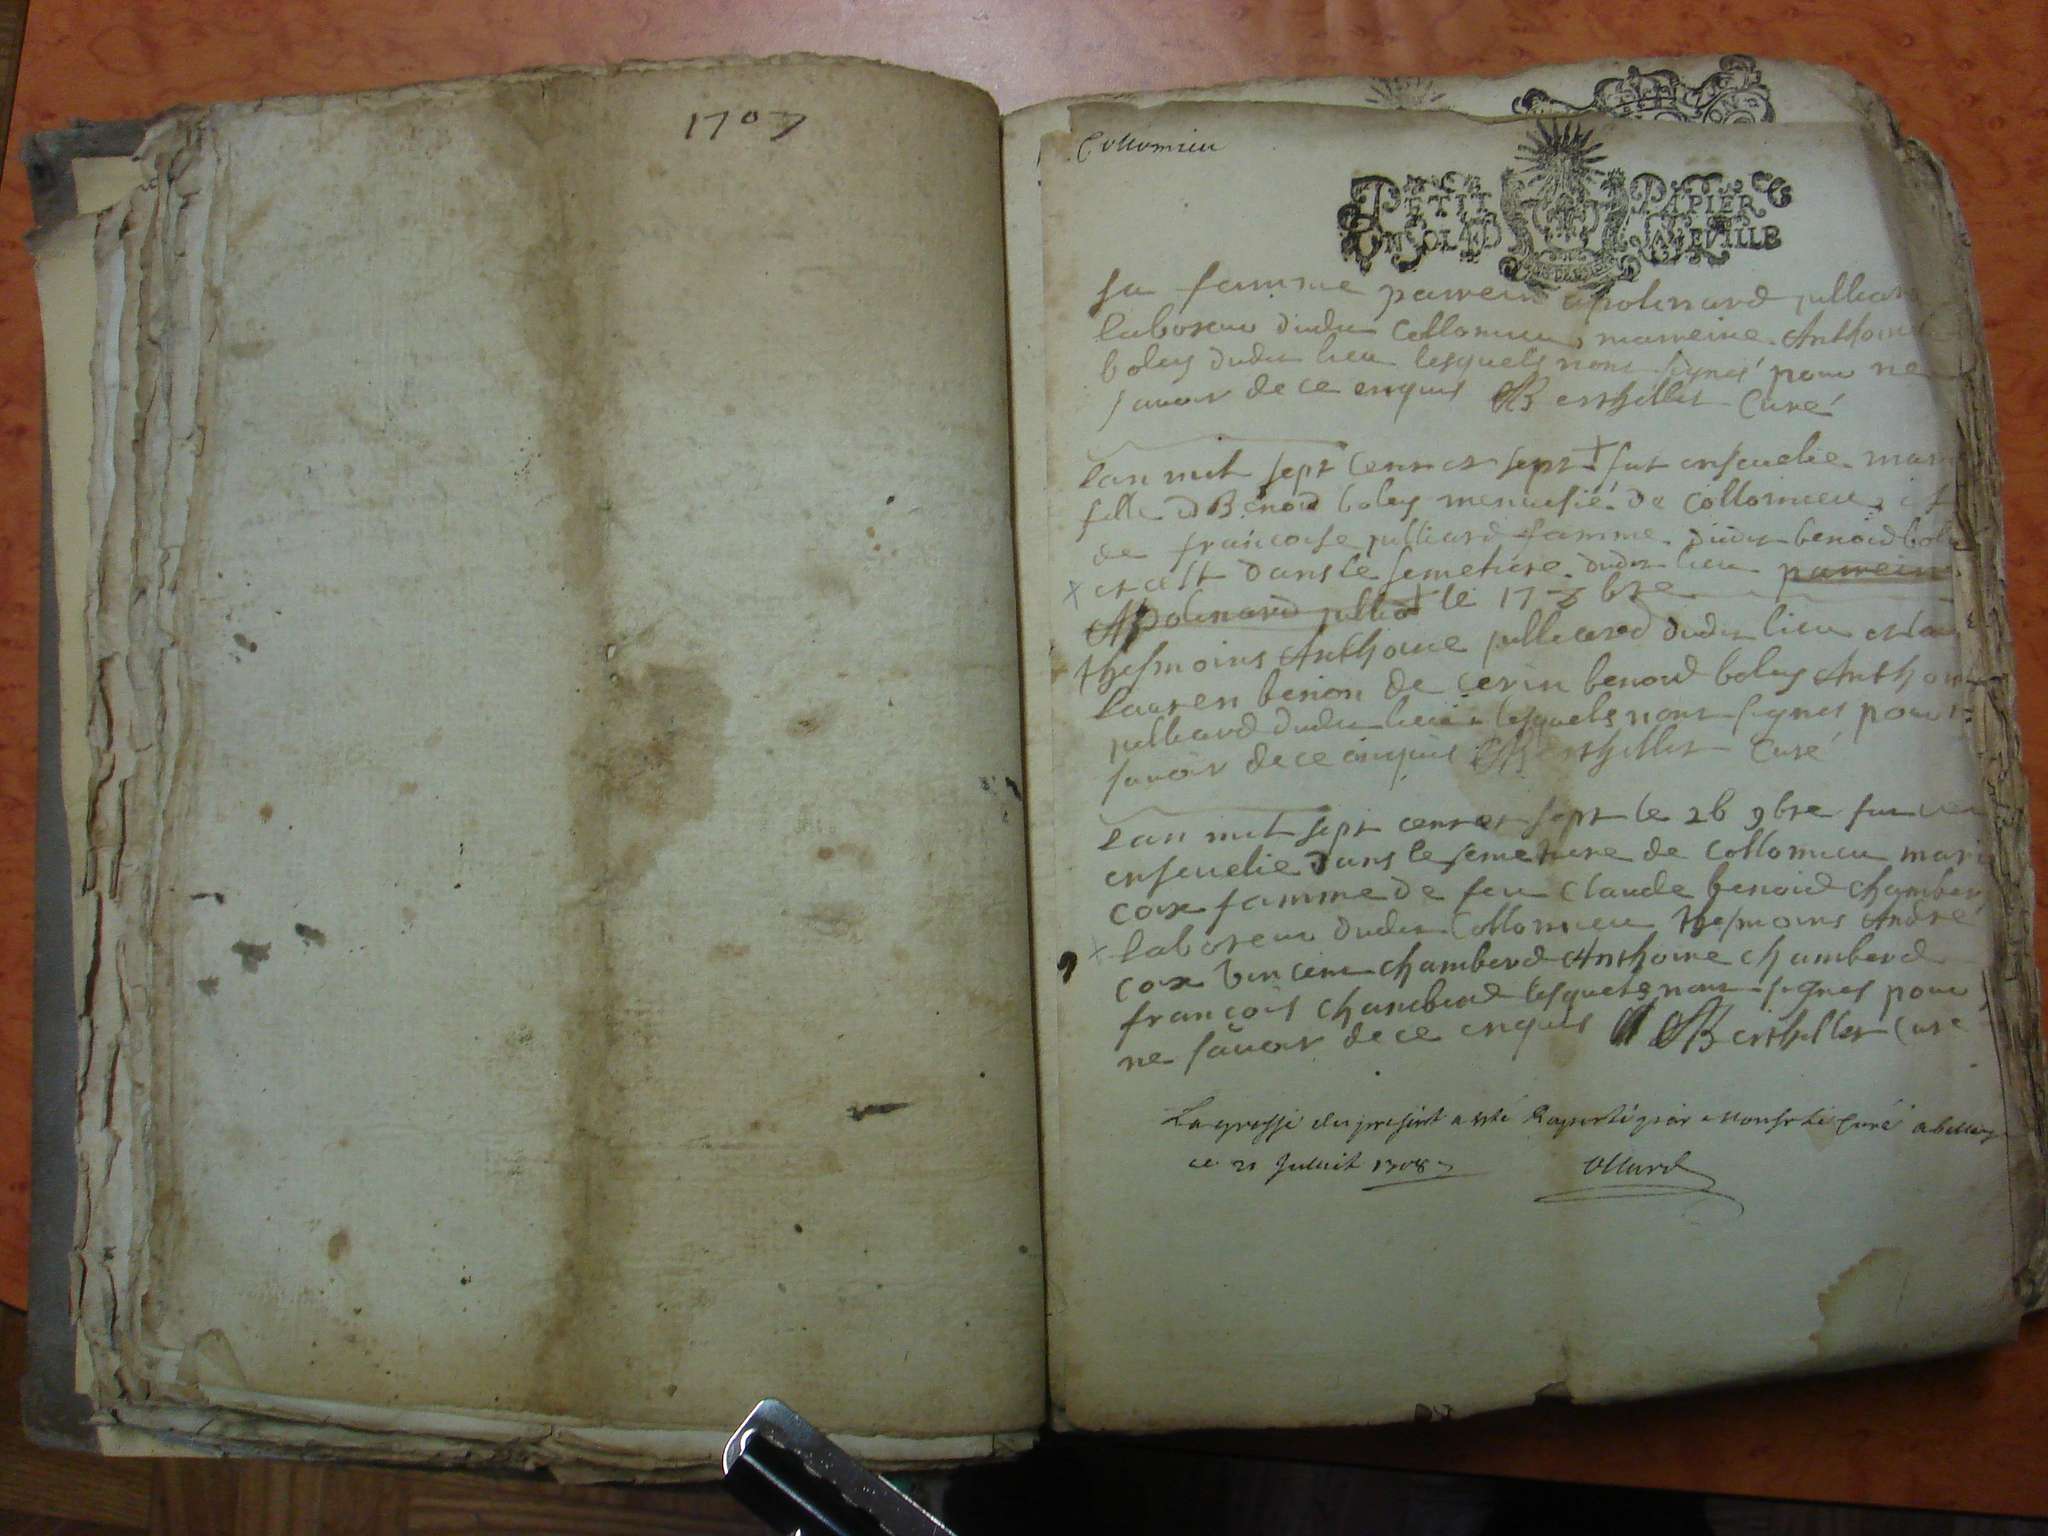 1707
Collomieu
PETIT PAPIER
UN SOL 4D LA FEUILLE
sa famme parrein apolinard julliar
laboreur dudit Collomieu marreine Anthoine
boley dudit lieu lesquels nont signes pour ne
savoir de ce enquis Berthillet Curé
Lan mil sept cens et sept + fut ensevelie marie
fille d Benoid boley menusié de Collomieu et
de francoise julliard famme dudit benoid boley
× et cest dans le semetiere dudit lieu parrein
Apolinard julliar + le 17 bre
thesmoins Anthoine julliard dudit lieu et
lauren benion de cerin benoid boley Anthoine
julliard dudit lieu lesquels nont signes pour
savoir de ce enquis Berthillet Curé
Lan mil sept cens et sept le 26 9bre fut
ensevelie dans le semetiere de Collomieu marie
cox famme de feu Claude benoid chamberd
× laboreur dudit Collomieu thesmoins André
cox vincent chamberd Anthoine chamberd
francois chamberd lesquels nont signes pour
ne savoir de ce enquis Berthillet Curé
La grosse du present a esté Raporté par Monsr le Curé a belley
ce 21 Juillet 1708